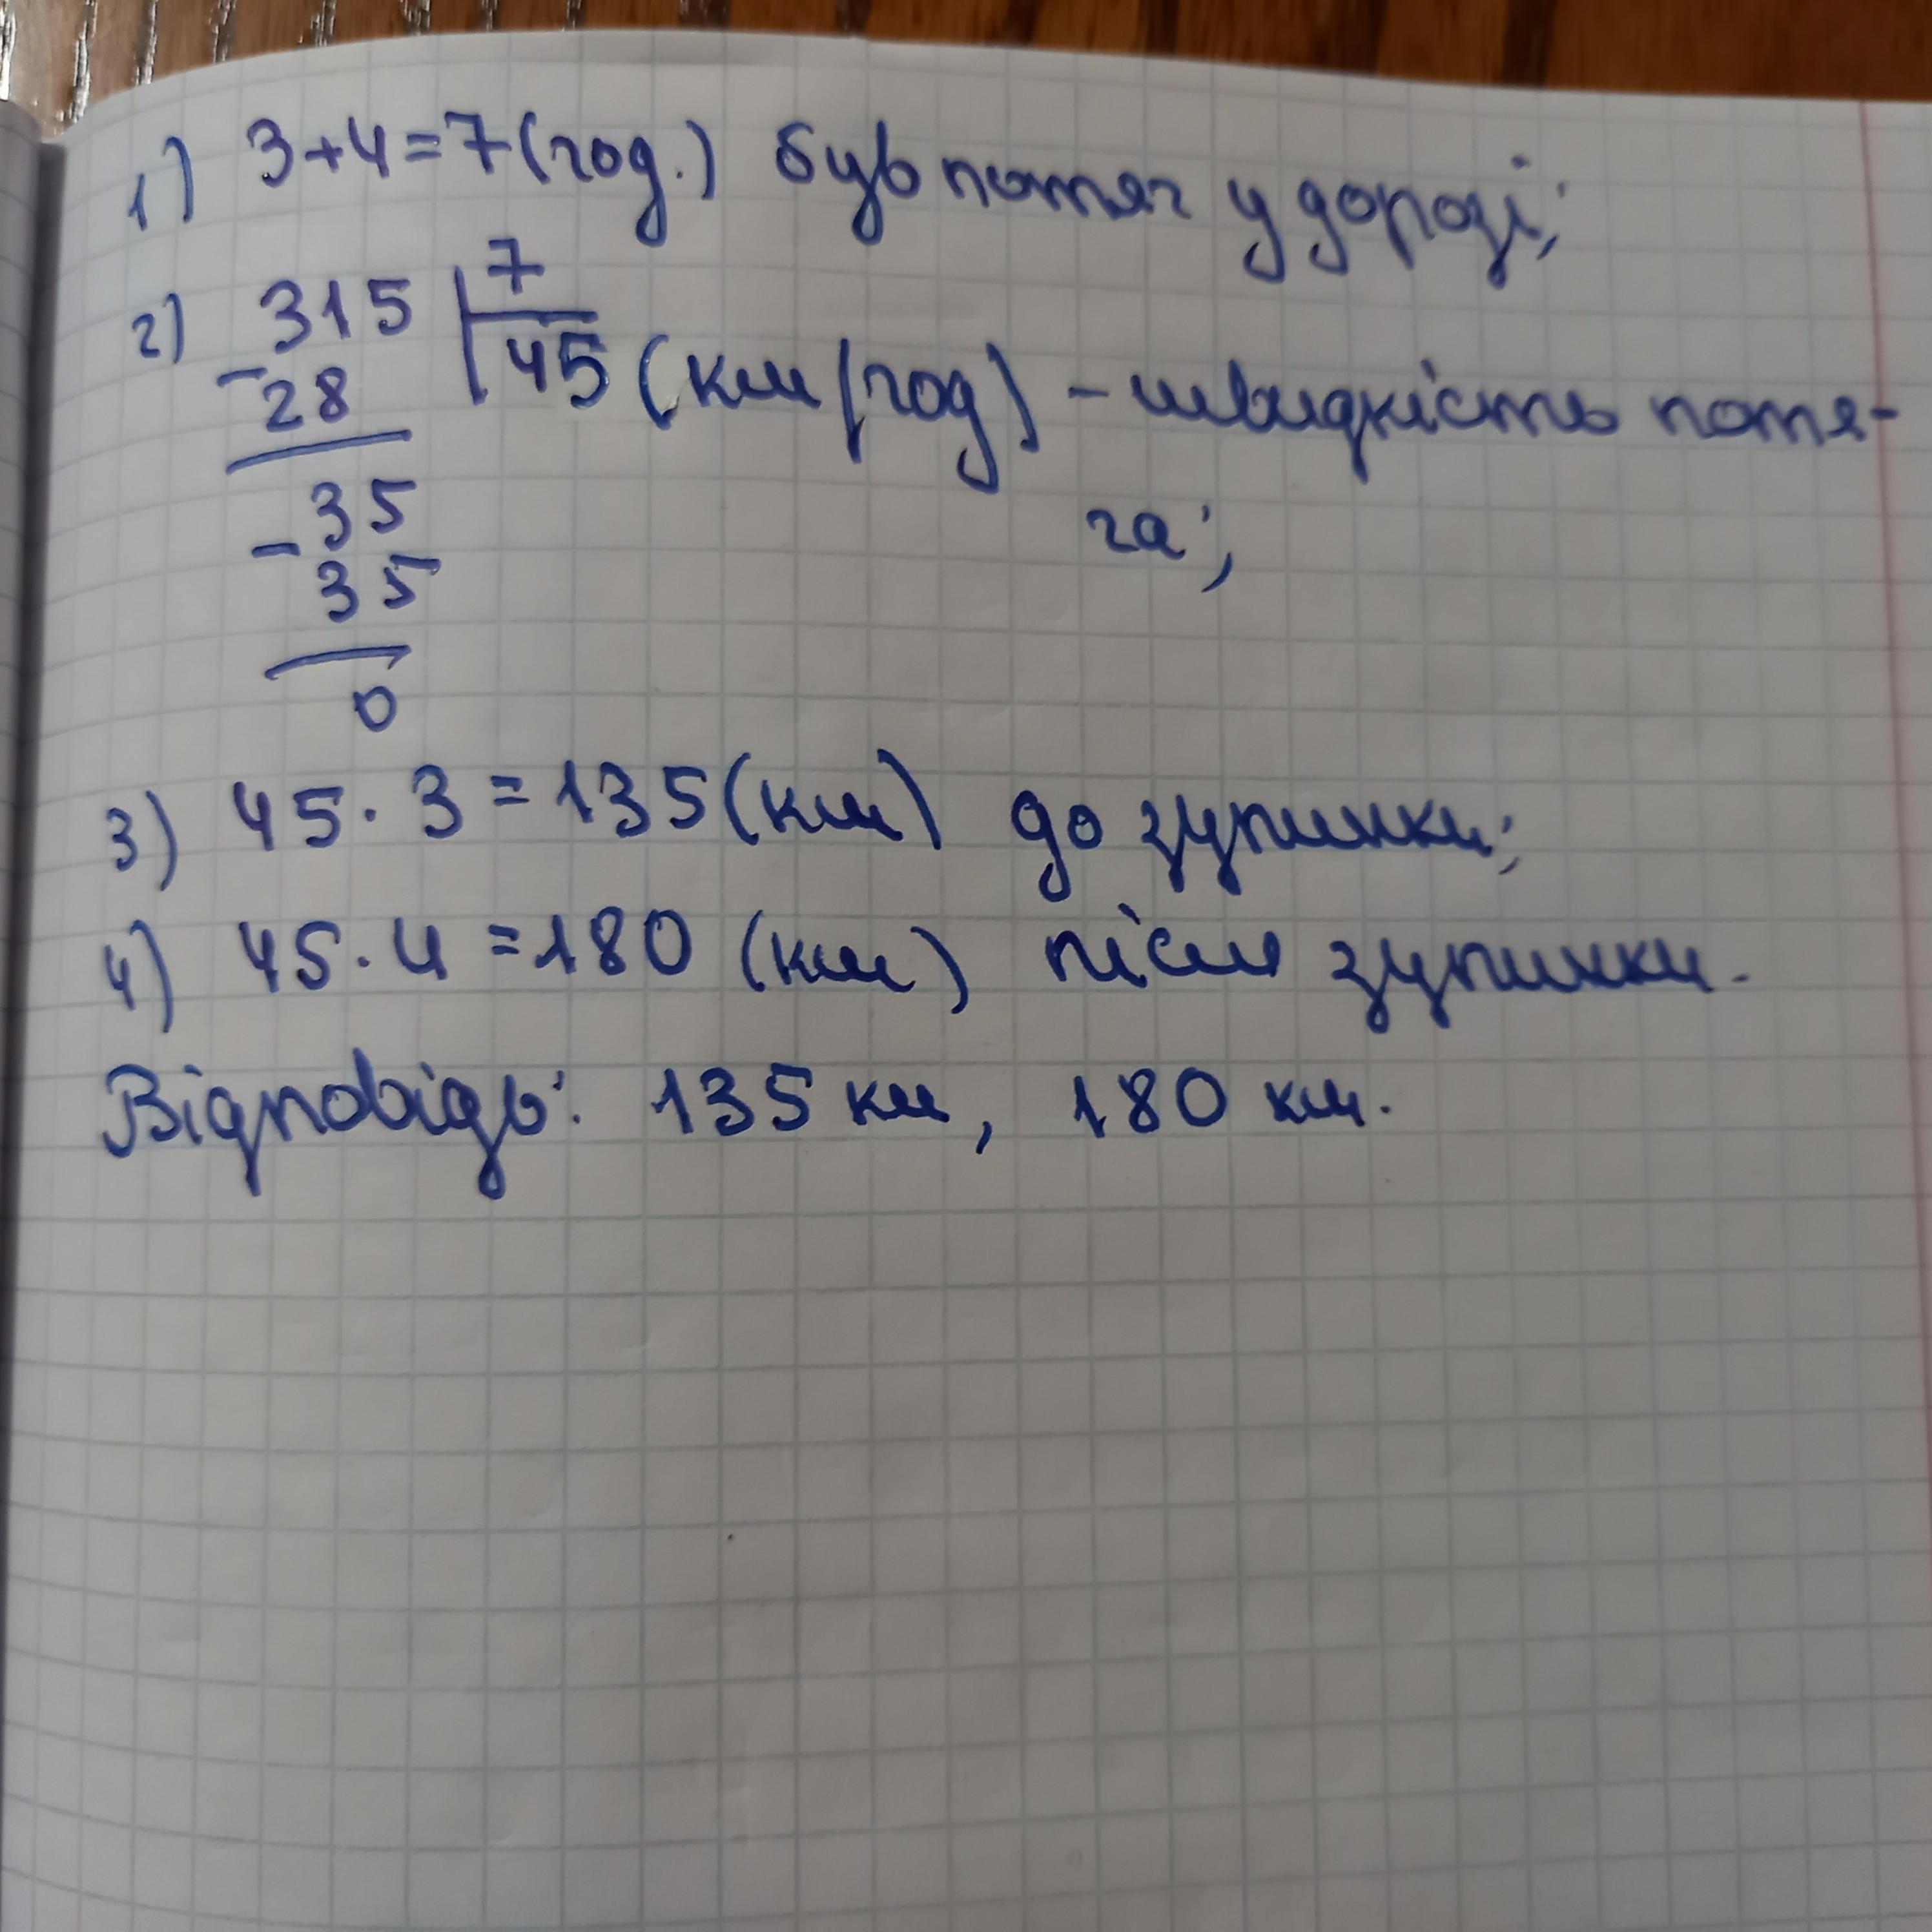 1) 3+4=7(год.) був потяг у дорозі;
2) 315 | 7
-28 45 (км/год) - швидкість потя-
-35 га;
35
0
3) 45·3=135(км) до зупинки;
4) 45·4=180 (км) після зупинки.
Відповідь: 135 км, 180 км.